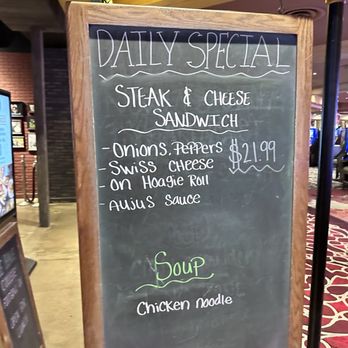 DAILY SPECIAL
STEAK & CHEESE
SANDWICH
- Onions, Peppers $21.99
- Swiss Cheese
- On Hoagie Roll
- AUJUS Sauce
Soup
Chicken noodle